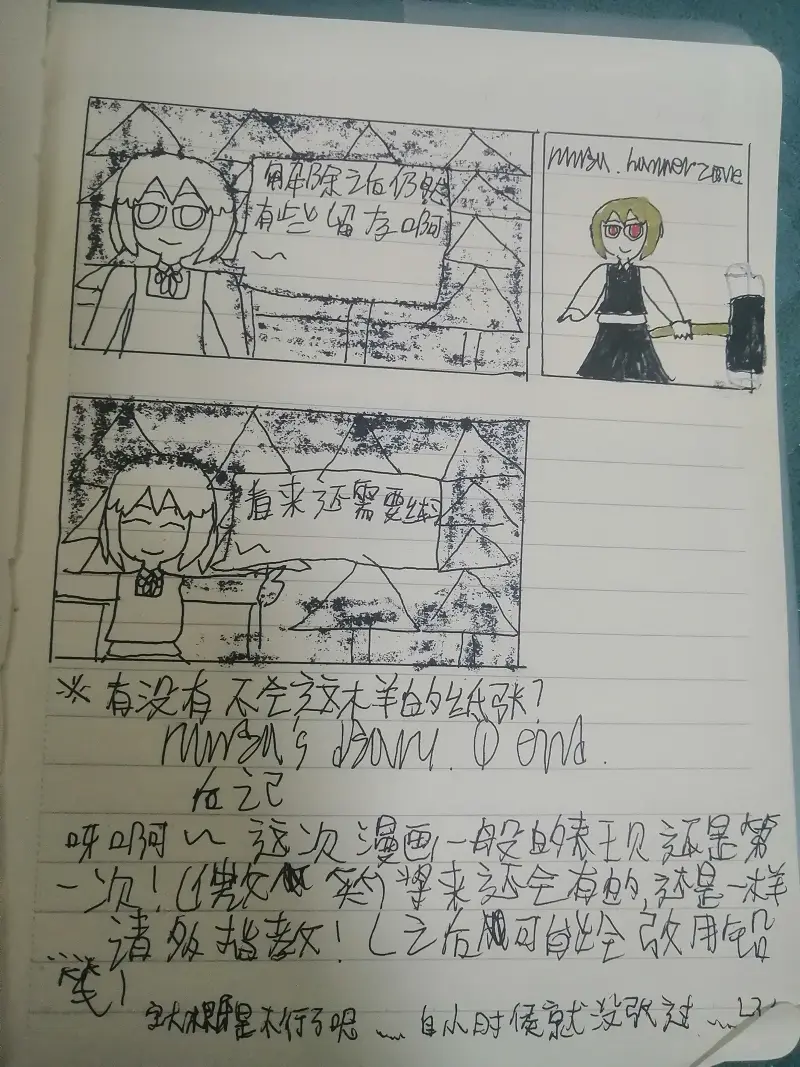 解除之后仍然
有些留存啊
~
hammer zone
看来还需要练习
~
※有没有不会这样的纸张?
① end.
后记
呀啊~ 这次漫画一般的表现还是第
一次! 笑) 将来还会有的,还是一样
请多指教! (之后可能会改用铅
笔)
是不行了呢 自小时候就没张过